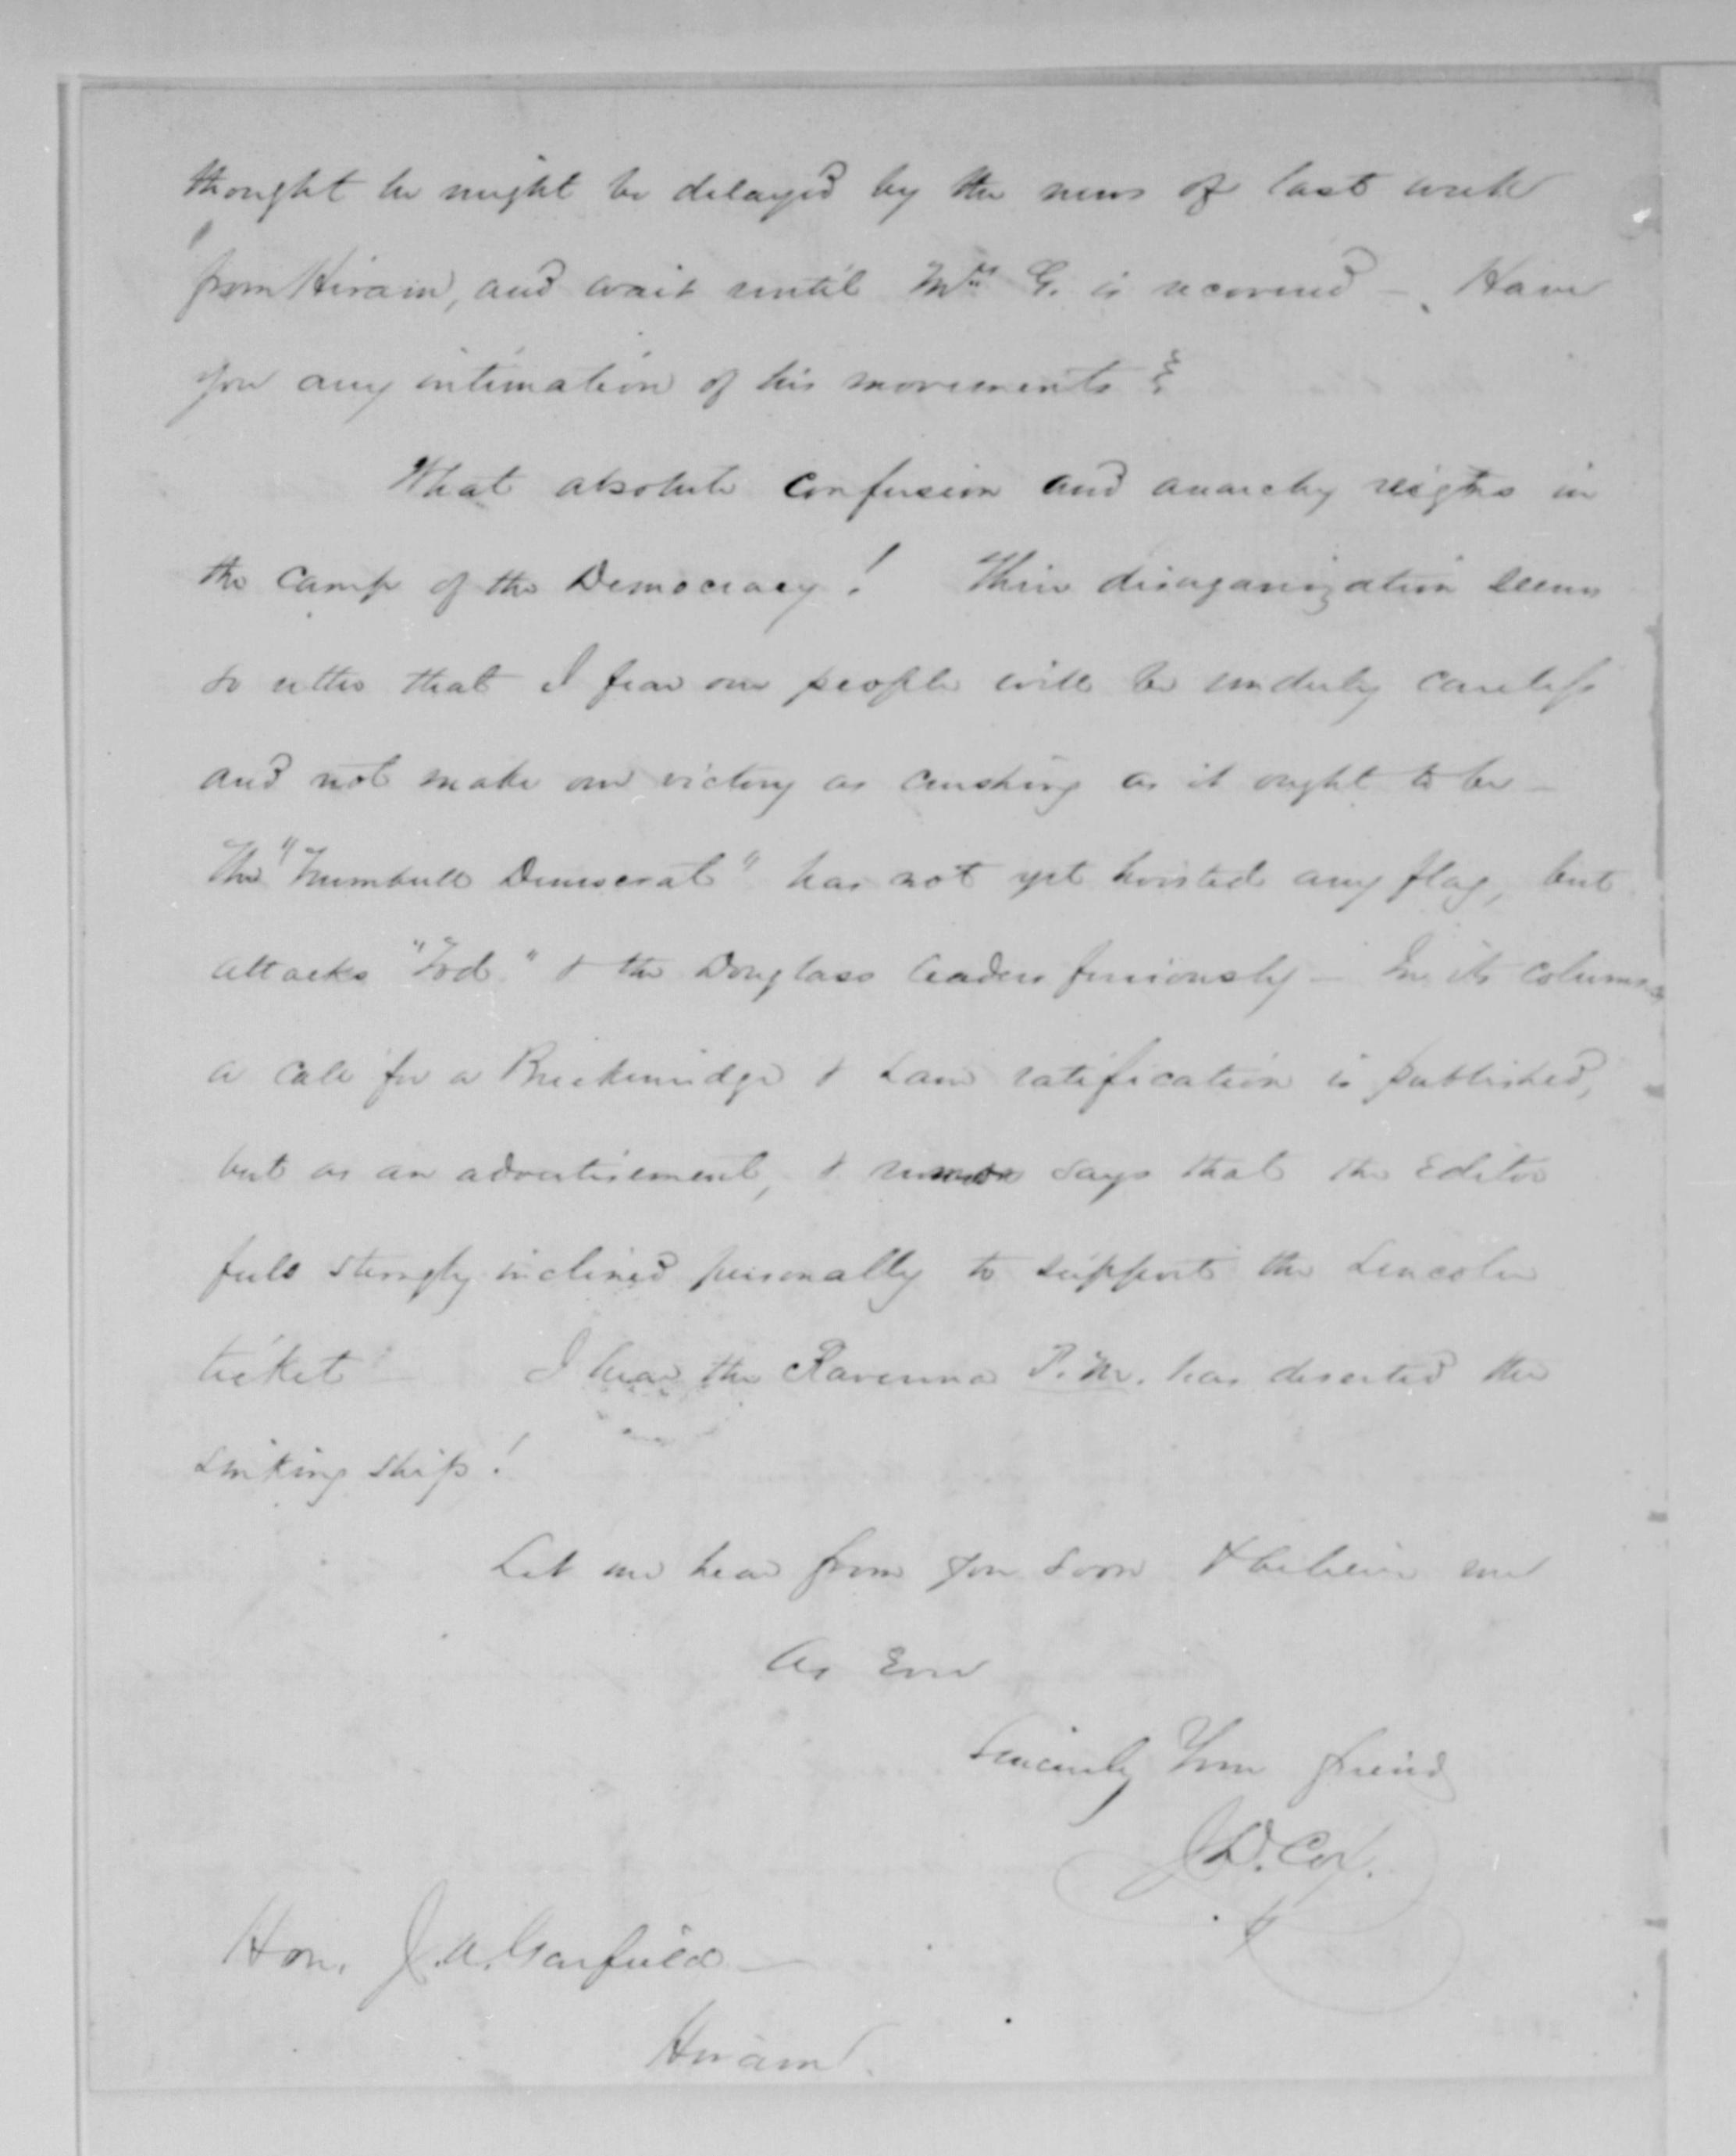 thought he might be delayed by the news of last week
from Hiram, and wait until Mrs G. is recovered - Have
you any intimation of his movements?
What absolute confusion and anarchy reigns in
the camp of the Democracy! Their disorganization seems
so utter that I fear our people will be unduly careless
and not make our victory as crushing as it ought to be -
The "Trumbull Democrat" has not yet hoisted any flag, but
attacks "Tod" & the Douglass leaders furiously - In its columns
a call for a Breckenridge & Lane ratification is published,
but as an advertisement, & rumor says that the Editor
feels strongly inclined personally to support the Lincoln
ticket - I hear the Ravenna P.M. has deserted the
sinking ship!
Let me hear from you soon & believe me
As Ever
Sincerely Your friend
J.D. Cox.
Hon. J. A. Garfield -
Hiram.